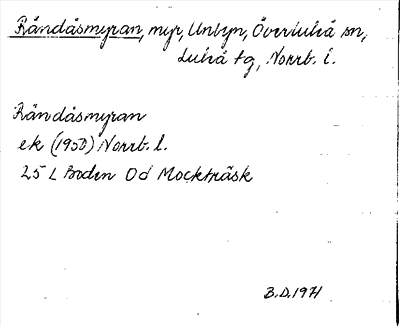 Råndåsmyran, myr, Unbyn, Överluleå sn,
Luleå tg, Norrb. l.
Råndåsmyran
ek (1950) Norrb. l.
25 L Boden 0d Mockträsk
B.D. 1971